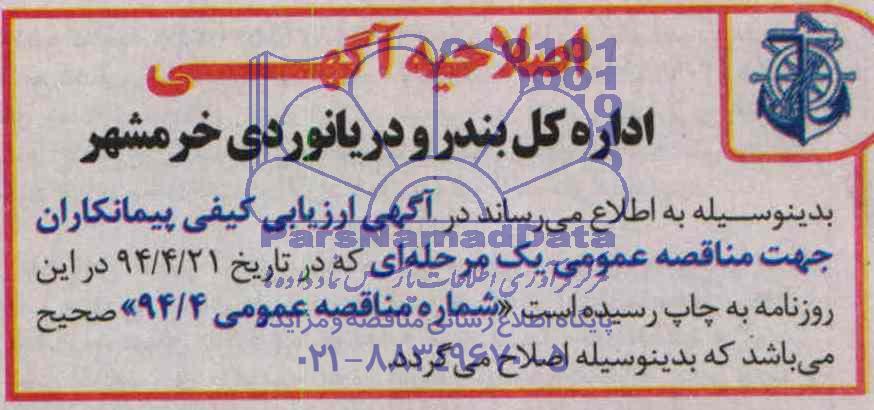 اصلاحیه آگهی
اداره کل بندر و دریانوردی خرمشهر
بدینوسیله به اطلاع می‌رساند در آگهی ارزیابی کیفی پیمانکاران
جهت مناقصه عمومی یک مرحله‌ای که در تاریخ ۹۴/۴/۲۱ در این
روزنامه به چاپ رسیده است «شماره مناقصه عمومی ۹۴/۴» صحیح
می‌باشد که بدینوسیله اصلاح می‌گردد.
ParsNamadData
مرکز فرآوری اطلاعات پارس نماد داده ها
پایگاه اطلاع رسانی مناقصه و مزایده
۰۲۱-۸۸۳۴۹۶۷۰-۵